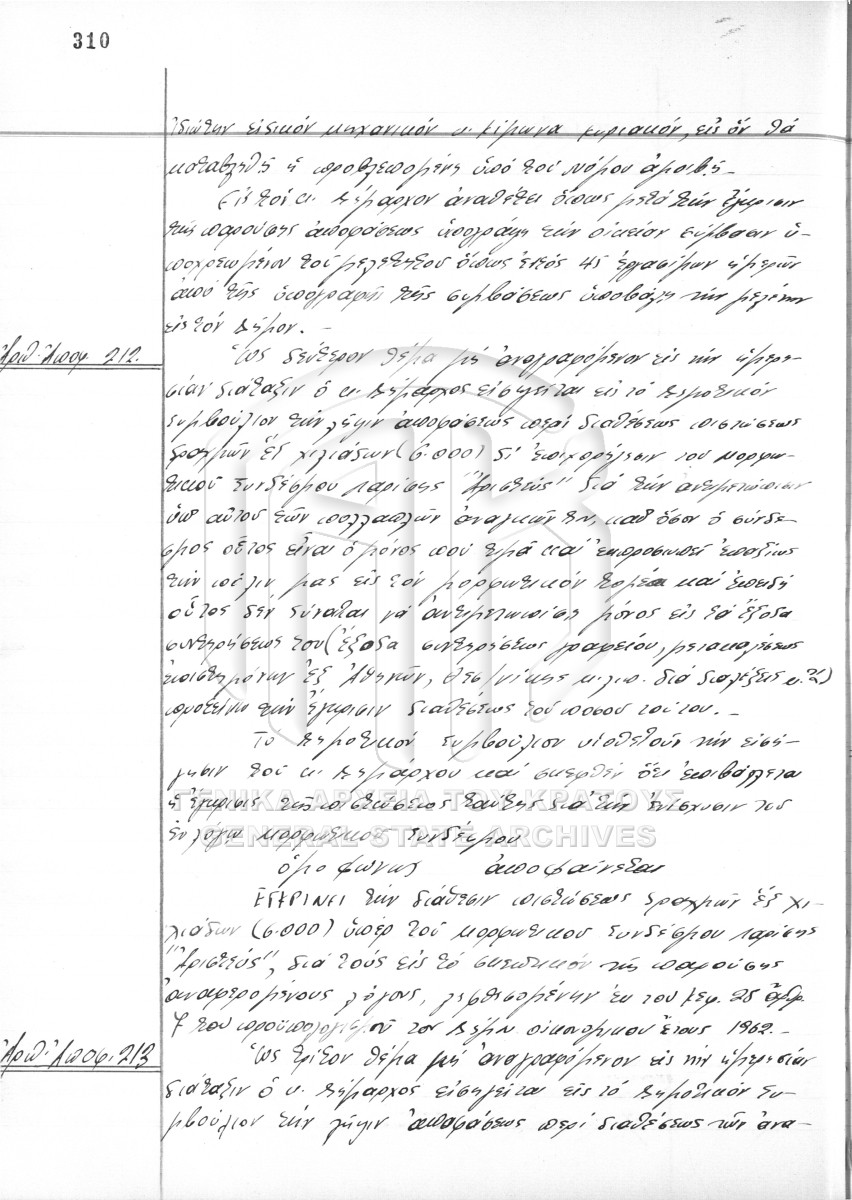 310
ἰδιώτην εἰδικόν μηχανικόν κ. Κίμωνα Κυριακόν, εἰς ὅν θά
καταβληθῇ ἡ προβλεπομένη ὑπό τοῦ Νόμου ἀμοιβή.-
Εἰς τόν κ. Δήμαρχον ἀναθέτει ὅπως μετά τήν ἔγκρισιν
τῆς παρούσης ἀποφάσεως ὑπογράψῃ τήν οἰκείαν σύμβασιν ὑ-
ποχρεωμένου τοῦ μελετητοῦ ὅπως ἐντός 45 ἐργασίμων ἡμερῶν
ἀπό τῆς ὑπογραφῆς τῆς συμβάσεως ὑποβάλῃ τήν μελέτην
εἰς τόν Δῆμον.-
Ἀριθ. Ἀποφ. 212.
Ὡς δεύτερον θέμα μή ἀναγραφόμενον εἰς τήν ἡμερη-
σίαν διάταξιν ὁ κ. Δήμαρχος εἰσηγεῖται εἰς τό Δημοτικόν
Συμβούλιον τήν λῆψιν ἀποφάσεως περί διαθέσεως πιστώσεως
δραχμῶν ἕξ χιλιάδων (6.000) δι' ἐπιχορήγησιν τοῦ Μορφω-
τικοῦ Συνδέσμου Λαρίσης "Ἀριστεύς" διά τήν ἀντιμετώπισιν
ὑπ' αὐτοῦ τῶν πολλαπλῶν ἀναγκῶν του, καθ' ὅσον ὁ σύνδε-
σμος οὗτος εἶναι ὁ μόνος πού τιμᾶ καί ἐκπροσωπεῖ ἐπαξίως
τήν πόλιν μας εἰς τόν μορφωτικόν τομέα καί ἐπειδή
οὗτος δέν δύναται νά ἀντιμετωπίσῃ μόνος εἰς τά ἔξοδα
συντηρήσεώς του (ἔξοδα συντηρήσεως γραφείου, μετακλήσεως
ἐπιστημόνων ἐξ Ἀθηνῶν, Θεσ/νίκης κ.λ.π. διά διαλέξεις κ.ἄ)
προτείνω τήν ἔγκρισιν διαθέσεως τοῦ ποσοῦ τούτου.-
Τό Δημοτικόν Συμβούλιον υἱοθετοῦν τήν εἰσή-
γησιν τοῦ κ. Δημάρχου καί σκεφθέν ὅτι ἐπιβάλλεται
ἡ ἔγκρισις τῆς πιστώσεως ταύτης διά τήν ἐνίσχυσιν τοῦ
ἐν λόγῳ Μορφωτικοῦ Συνδέσμου
ὁμοφώνως ἀποφαίνεται
ΕΓΚΡΙΝΕΙ τήν διάθεσιν πιστώσεως δραχμῶν ἕξ χι-
λιάδων (6.000) ὑπέρ τοῦ Μορφωτικοῦ Συνδέσμου Λαρίσης
"Ἀριστεύς", διά τούς εἰς τό σκεπτικόν τῆς παρούσης
ἀναφερομένους λόγους, ληφθησομένην ἐκ τοῦ Κεφ. 25 ἄρθρ.
7 τοῦ προϋπολογισμοῦ τοῦ Δήμου οἰκονομικοῦ ἔτους 1962.-
Ἀριθ. Ἀποφ. 213
Ὡς τρίτον θέμα μή ἀναγραφόμενον εἰς τήν ἡμερησίαν
διάταξιν ὁ κ. Δήμαρχος εἰσηγεῖται εἰς τό Δημοτικόν Συ-
μβούλιον τήν λῆψιν ἀποφάσεως περί διαθέσεως τῶν ἀνα-
ΓΕΝΙΚΑ ΑΡΧΕΙΑ ΤΟΥ ΚΡΑΤΟΥΣ
GENERAL STATE ARCHIVES